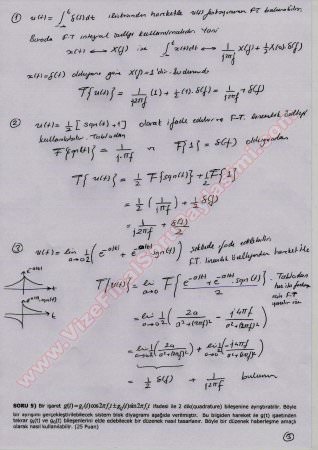 ① u(t) = ∫ δ(t)dt ifadesinden hareketle u(t) fonksiyonunun F.T. bulunabilir.
Burada F.T integral özelliği kullanılmalıdır. Yani
x(t) ↔ X(f) ise ∫ x(t)dt ↔ 1/(j2πf) X(f) + 1/2 X(0).δ(f)
x(t) = δ(t) olduğuna göre X(f) = 1'dir. bu durumda
F{u(t)} = 1/(j2πf) (1) + 1/2 (1). δ(f) =
② u(t) = 1/2 [sgn(t) + 1] olarak ifade edilir ve F.T. lineerlik özelliği
kullanılabilir. Tablodan
F{sgn(t)} = 1/(jπf) ve F{1} = δ(f) olduğundan
F{u(t)} = 1/2 F{sgn(t)} + 1/2 F{1}
= 1/2 (1/(jπf)) + 1/2 δ(f)
= 1/(j2πf) + δ(f)/2
③ u(t) = lim a→0 1/2 (e^-a|t| + e^-a|t| sgn(t)) şeklinde ifade edilebilir.
F.T. lineerlik özelliğinden hareketle
F{u(t)} = lim a→0 F{(e^-a|t| + e^-a|t| . sgn(t))/2} Tablodan
= lim a→0 1/2 (2a/(a²+(2πf)²) - j4πf/(a²+(2πf)²))
= lim a→0 1/2 (2a/(a²+(2πf)²)) + lim a→0 1/2 (-j4πf/(a²+(2πf)²))
= 1/2 δ(f) + 1/(j2πf) bulunur.
www.VizeFinalSoruPaylasimi.com
SORU 5) Bir işaret g(t)=g₁(t)cos2πf꜀t±g_Q(t)sin2πf꜀t ifadesi ile 2 dik(quadrature) bileşenine ayrıştırabilir. Böyle
bir ayrışımı gerçekleştirilebilecek sistem blok diyagramı aşağıda verilmiştir. Bu bilgiden hareket ile g(t) işaretinden
tekrar g₁(t) ve g_Q(t) bileşenlerini elde edebilecek bir düzenek nasıl tasarlanır. Böyle düzenek haberleşme amaçlı
olarak nasıl kullanılabilir. (25 Puan)